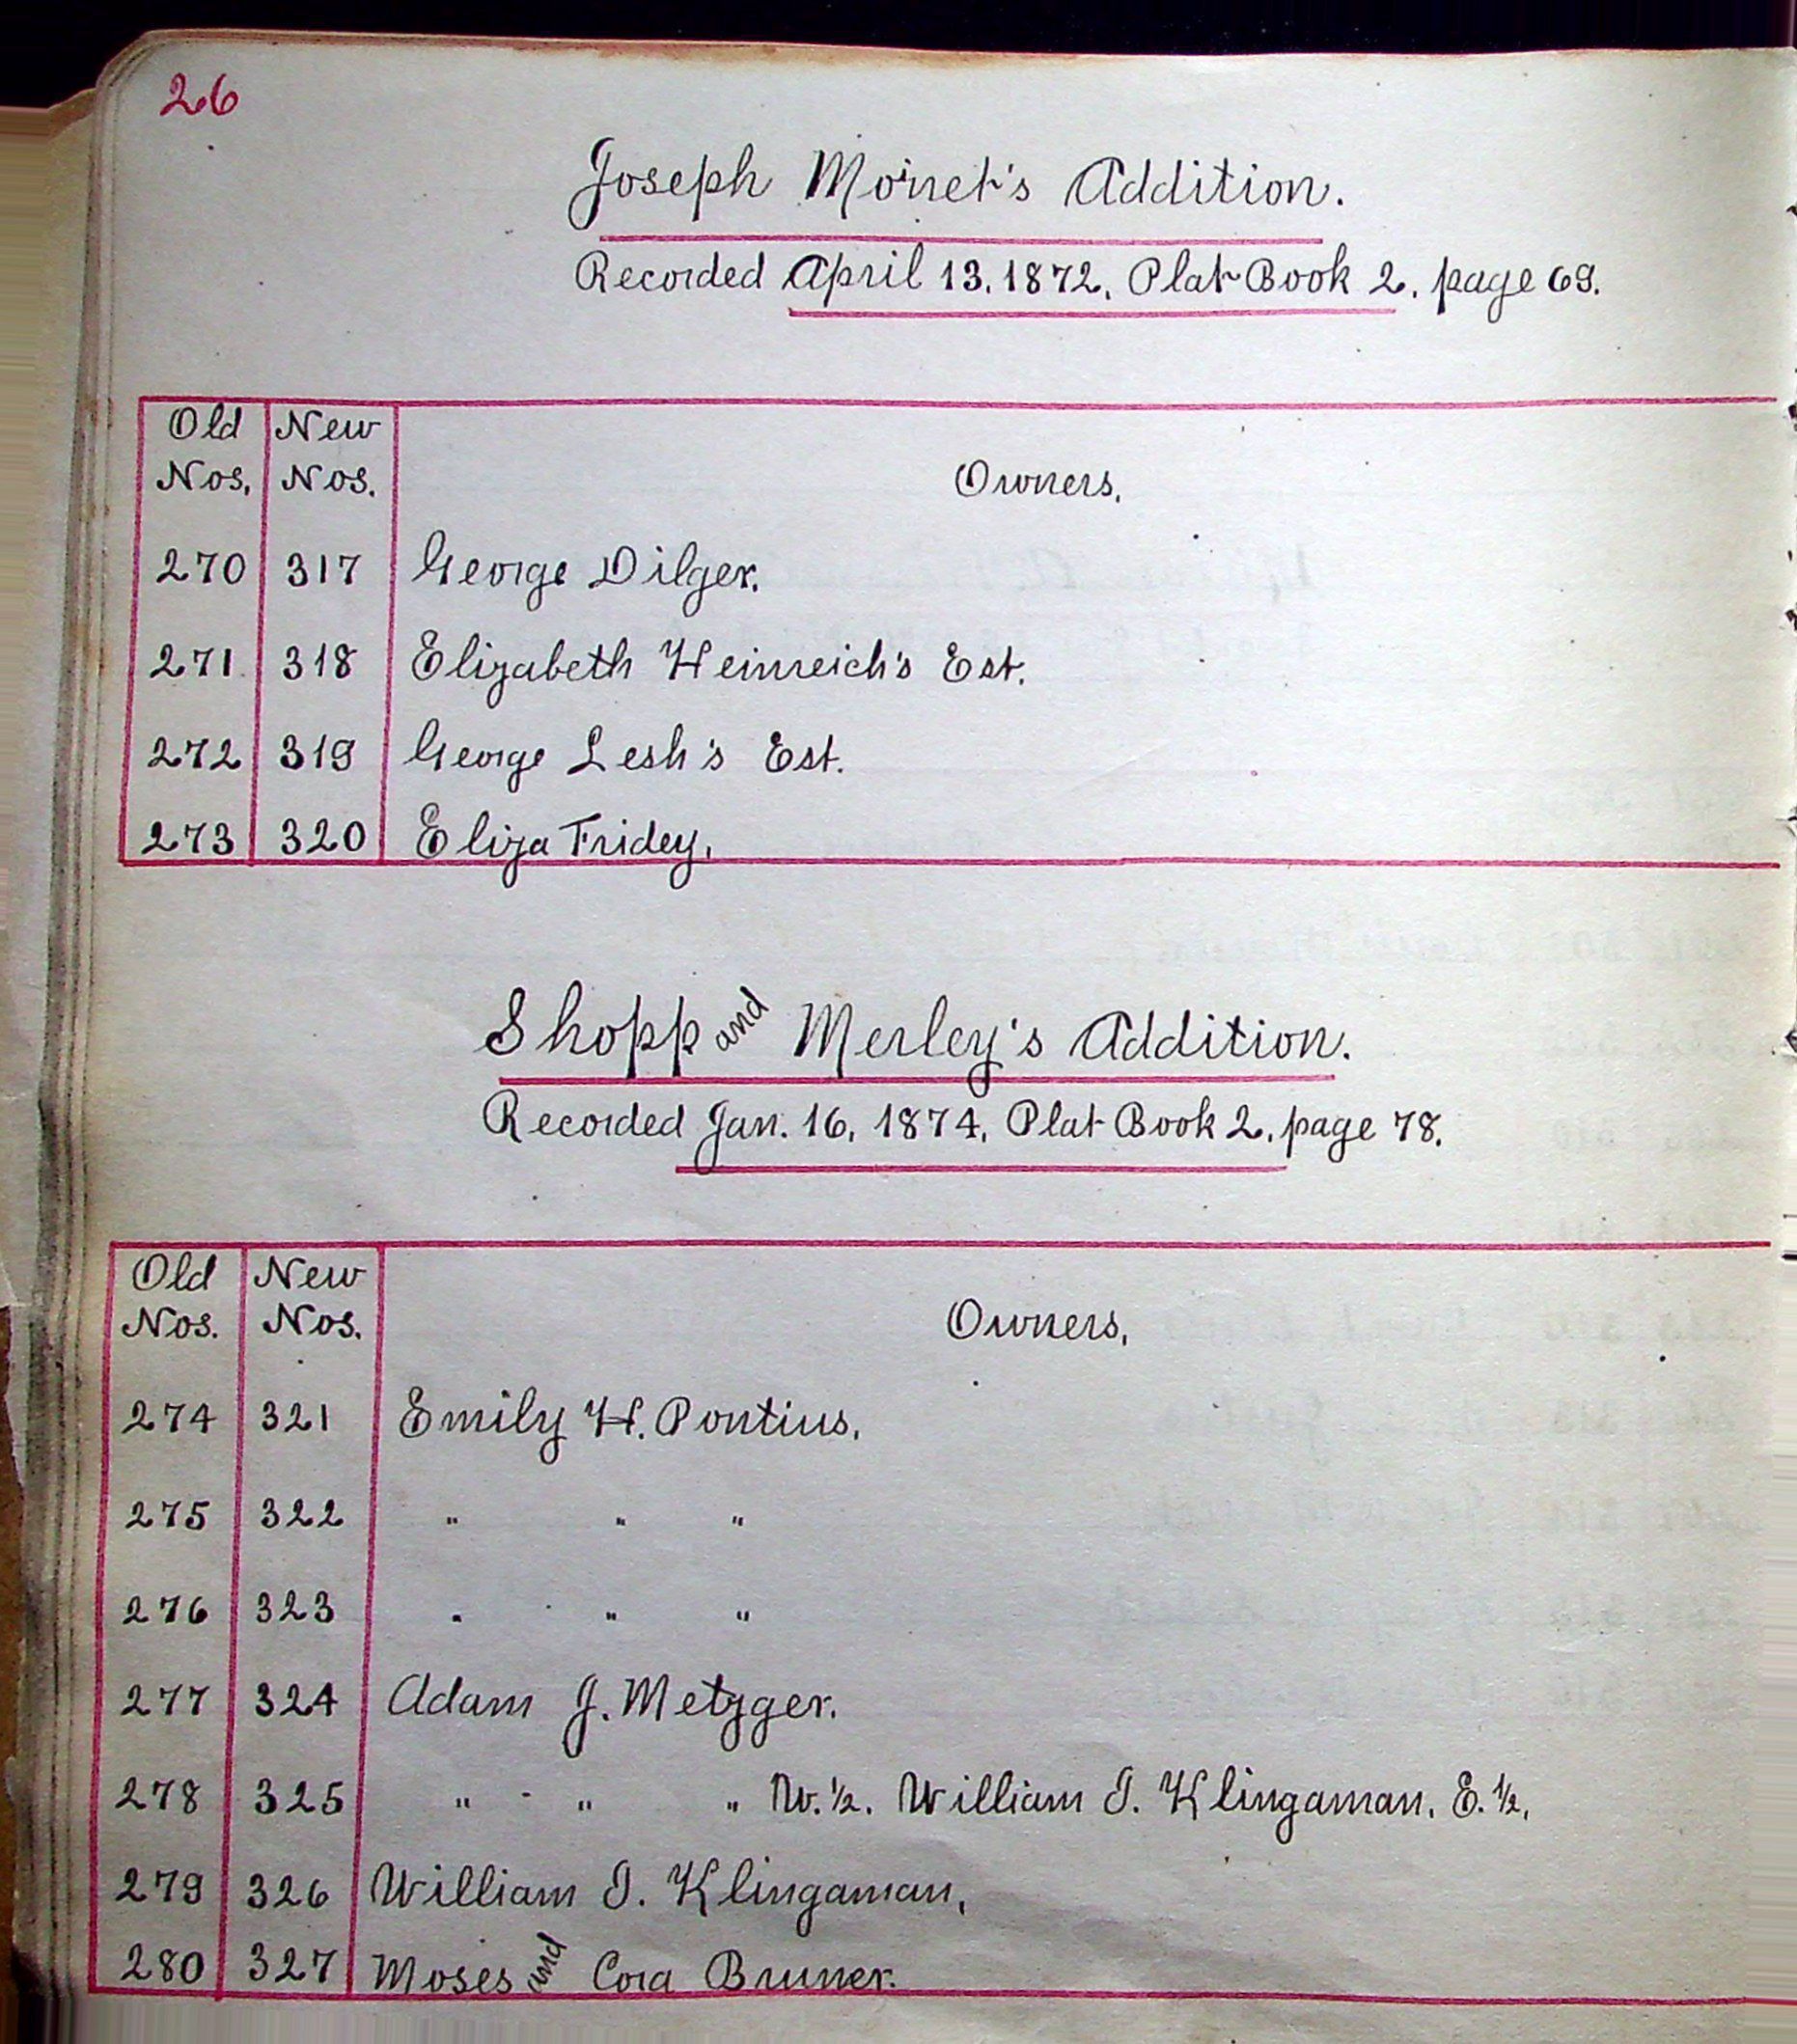 26
Joseph Moinet's Addition.
Recorded April 13, 1872, Plat Book 2, page 69.
Old New
Nos. Nos. Owners.
270 317 George Dilger.
271 318 Elizabeth Heinreich's Est.
272 319 George Lesh's Est.
273 320 Eliza Fridey.
Shopp and Merley's Addition.
Recorded Jan. 16, 1874, Plat Book 2, page 78.
Old New
Nos. Nos. Owners.
274 321 Emily H. Pontius.
275 322 " " "
276 323 " " "
277 324 Adam J. Metzger.
278 325 " " " W. ½. William I. Klingaman. E. ½.
279 326 William I. Klingaman.
280 327 Moses and Cora Bruner.